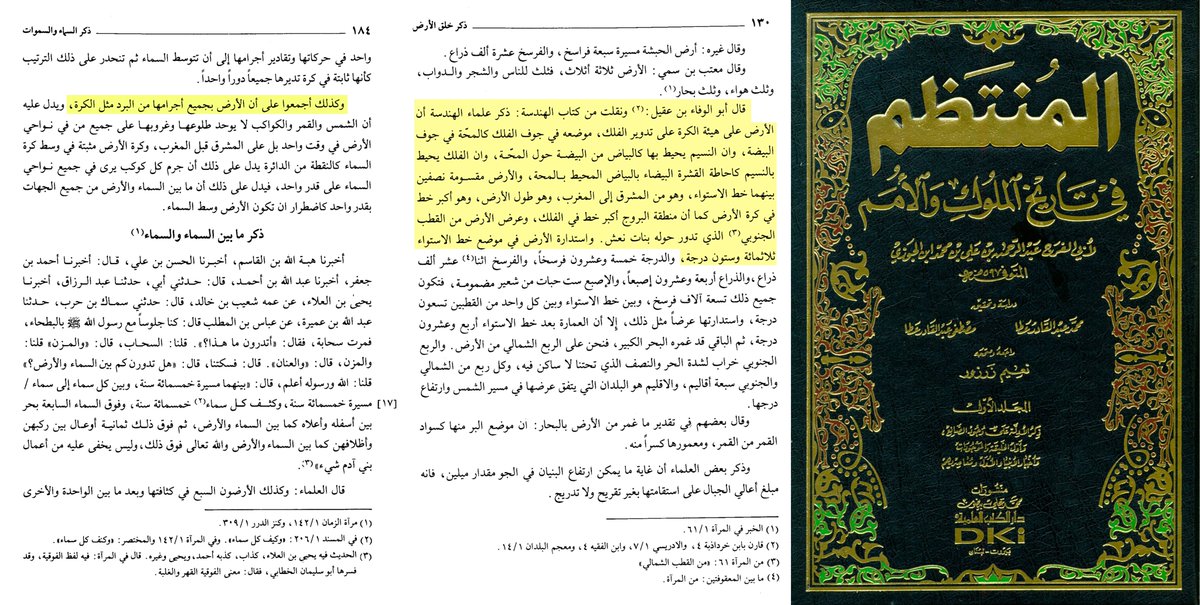 المنتظم
في تاريخ الملوك والأمم
لأبي الفرج عبد الرحمن بن علي بن محمد ابن الجوزي
المتوفى ٥٩٧ هـ
دراسة وتحقيق
محمد عبد القادر عطا
مصطفى عبد القادر عطا
راجعه وصححه
نعيم زرزور
المجلد الأول
منشورات
محمد علي بيضون
دار الكتب العلمية
DKi
بيروت - لبنان
١٣٠
ذكر خلق الأرض
وقال غيره: أرض الحبشة مسيرة سبعة فراسخ، والفرسخ عشرة ألف ذراع.
وقال معتب بن سمي: الأرض ثلاثة أثلاث، فثلث للناس والشجر والدواب،
وثلث هواء، وثلث بحار(١).
قال أبو الوفاء بن عقيل:(٢) ونقلت من كتاب الهندسة: ذكر علماء الهندسة أن
الأرض على هيئة الكرة على تدوير الفلك، موضعه في جوف الفلك كالمحّة في جوف
البيضة، وان النسيم يحيط بها كالبياض من البيضة حول المحّة، وان الفلك يحيط
بالنسيم كاحاطة القشرة البيضاء بالبياض المحيط بالمحة، والأرض مقسومة نصفين
بينهما خط الاستواء، وهو من المشرق إلى المغرب، وهو طول الأرض، وهو أكبر خط
في كرة الأرض كما أن منطقة البروج أكبر خط في الفلك، وعرض الأرض من القطب
الجنوبي(٣) الذي تدور حوله بنات نعش. واستدارة الأرض في موضع خط الاستواء
ثلاثمائة وستون درجة، والدرجة خمسة وعشرون فرسخاً، والفرسخ اثنا(٤) عشر ألف
ذراع، والذراع أربعة وعشرون إصبعاً، والإصبع ست حبات من شعير مضمومة، فتكون
جميع ذلك تسعة آلاف فرسخ، وبين خط الاستواء وبين كل واحد من القطبين تسعون
درجة، واستدارتها عرضاً مثل ذلك، إلا أن العمارة بعد خط الاستواء أربع وعشرون
درجة، ثم الباقي قد غمره البحر الكبير، فنحن على الربع الشمالي من الأرض. والربع
الجنوبي خراب لشدة الحر والنصف الذي تحتنا لا ساكن فيه، وكل ربع من الشمالي
والجنوبي سبعة أقاليم، والاقليم هو البلدان التي يتفق عرضها في مسير الشمس وارتفاع
درجها.
وقال بعضهم في تقدير ما غمر من الأرض بالبحار: ان موضع البر منها كسواد
القمر من القمر، ومعمورها كسراً منه.
وذكر بعض العلماء أن غاية ما يمكن ارتفاع البنيان في الجو مقدار ميلين، فانه
مبلغ أعالي الجبال على استقامتها بغير تقريح ولا تدريج.
(١) الخبر في المرآة ٦١/١.
(٢) قارن بابن خرداذبة ٤، والادريسي ٧/١، وابن الفقيه ٤، ومعجم البلدان ١٤/١.
(٣) من المرآة ٦١: «من القطب الشمالي»
(٤) ما بين المعقوفتين: من المرآة.
١٨٤
ذكر السماء والسموات
واحد في حركاتها وتقادير أجرامها إلى أن تتوسط السماء ثم تنحدر على ذلك الترتيب
كأنها ثابتة في كرة تديرها جميعاً دوراً واحداً.
وكذلك أجمعوا على أن الأرض بجميع أجرامها من البرد مثل الكرة، ويدل عليه
أن الشمس والقمر والكواكب لا يوحد طلوعها وغروبها على جميع من في نواحي
الأرض في وقت واحد بل على المشرق قبل المغرب، وكرة الأرض مثبتة في وسط كرة
السماء كالنقطة من الدائرة يدل على ذلك أن جرم كل كوكب يرى في جميع نواحي
السماء على قدر واحد، فيدل على ذلك أن ما بين السماء والأرض من جميع الجهات
بقدر واحد كاضطرار ان تكون الأرض وسط السماء.
ذكر ما بين السماء والسماء(١)
أخبرنا هبة الله بن القاسم، أخبرنا الحسن بن علي، قال: أخبرنا أحمد بن
جعفر، أخبرنا عبد الله بن أحمد، قال: حدثني أبي، حدثنا عبد الرزاق، أخبرنا
يحيى بن العلاء، عن عمه شعيب بن خالد، قال: حدثني سماك بن حرب، حدثنا
عبد الله بن عميرة، عن عباس بن المطلب قال: كنا جلوساً مع رسول الله ﷺ بالبطحاء،
فمرت سحابة، فقال: «أتدرون ما هذا؟». قلنا: السحاب، قال: «والمزن» قلنا:
والمزن، قال: «والعنان». قال: فسكتنا، قال: «هل تدورن كم بين السماء والأرض؟»
قلنا: الله ورسوله أعلم، قال: «بينهما مسيرة خمسمائة سنة، وبين كل سماء إلى سماء /
[١٧] مسيرة خمسمائة سنة، وكثف كل سماء(٢) خمسمائة سنة، وفوق السماء السابعة بحر
بين أسفله وأعلاه كما بين السماء والأرض، ثم فوق ذلك ثمانية أوعال بين ركبهن
وأظلافهن كما بين السماء والأرض والله تعالى فوق ذلك، وليس يخفى عليه من أعمال
بني آدم شيء»(٣).
قال العلماء: وكذلك الأرضون السبع في كثافتها وبعد ما بين الواحدة والأخرى
(١) مرآة الزمان ١٤٢/١، وكنز الدرر ٣٠٩/١.
(٢) في المسند ٢٠٦/١: «وكيف كل سماء». وفي المرآة ١٤٢/١ والمختصر: «وكنف كل سماء».
(٣) الحديث فيه يحيى بن العلاء، كذاب، كذبه أحمد، ويحيى وغيره. قال في المرآة: فيه لفظ الفوقية، وقد
فسرها أبو سليمان الخطابي، فقال: معنى الفوقية القهر والغلبة.